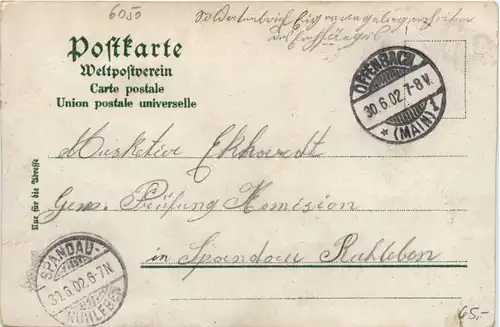 6050
Soldatenbrief Eigene Angelegenheiten
des Empfängers
Postkarte
Weltpostverein
Carte postale
Union postale universelle
OFFENBACH
30.6.02.7-8V.
* (MAIN) 1
Nur für die Adresse
Musketier Ekhardt
Gew. Prüfung Komision
in Spandau Ruhleben
SPANDAU-
30.6.02.6-7N.
RUHLEBEN
65,-